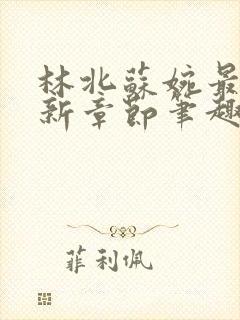 林北蘇婉最
新章節筆趣
菲利佩